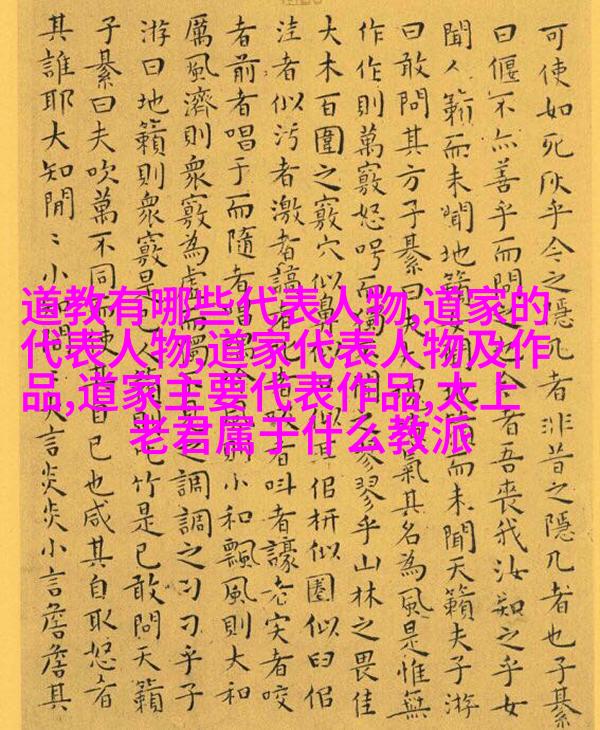 道教有哪些代表人物,道家的
代表人物,道家代表人物及作
品,道家主要代表作品,太上
老君属于什么教派
可使如死灰乎今之隱几者非昔之隱几者也子綦
曰偃不亦善乎而問之今者吾喪我汝知之乎女
聞人籟而未聞地籟女聞地籟而未聞天籟夫子游
曰敢問其方子綦曰夫大氣其名為風是惟無
作作則萬竅怒呺而獨不聞之翏翏乎山林之畏佳
大木百圍之竅穴似鼻似口似耳佀枅似圈似臼佀
洼者似污者激者謞者叱者叫者譹者宎者咬
者前者唱于而隨者唱喁則小和飄風則大和
厲風濟則衆竅為虛而獨不調調之刁刁乎子
游曰地籟則衆竅是已人籟則比竹是已敢問天籟
子綦曰夫吹萬不同而使其自已也咸其自取怒者
其誰耶大知閒〻小知閒〻大言炎炎小言詹詹其